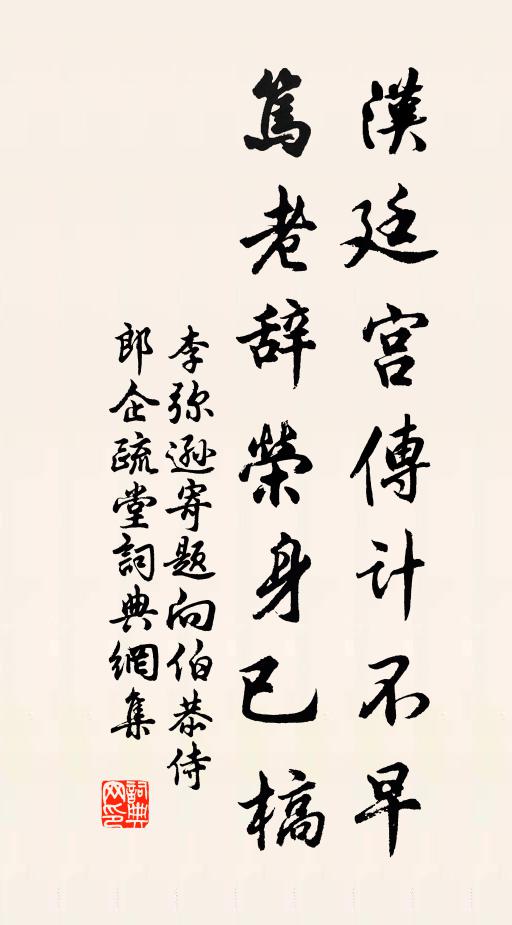 漢廷宫傅計不早
篤老辞榮身已槁
李弥遜寄題向伯恭侍
郎企疏堂詞典網集
詞典网印